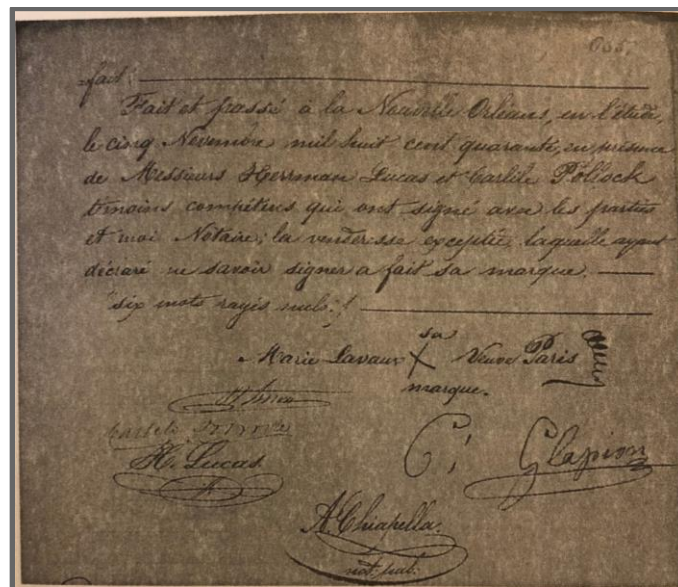 fait.
Fait et passé à la Nouvelle Orléans, en l'étude,
le cinq Novembre mil huit cent quarante, en présence
de Messieurs Herrman Lucas et Carlile Pollock
témoins compétens qui ont signé avec les parties
et moi Notaire; la venderesse exceptée, laquelle ayant
déclaré ne savoir signer a fait sa marque.
six mots rayés nuls./.
sa
Marie Lavaux X Veuve Paris
marque.
H. Lucas
C. Glapion
A Chiapella.
not. pub.